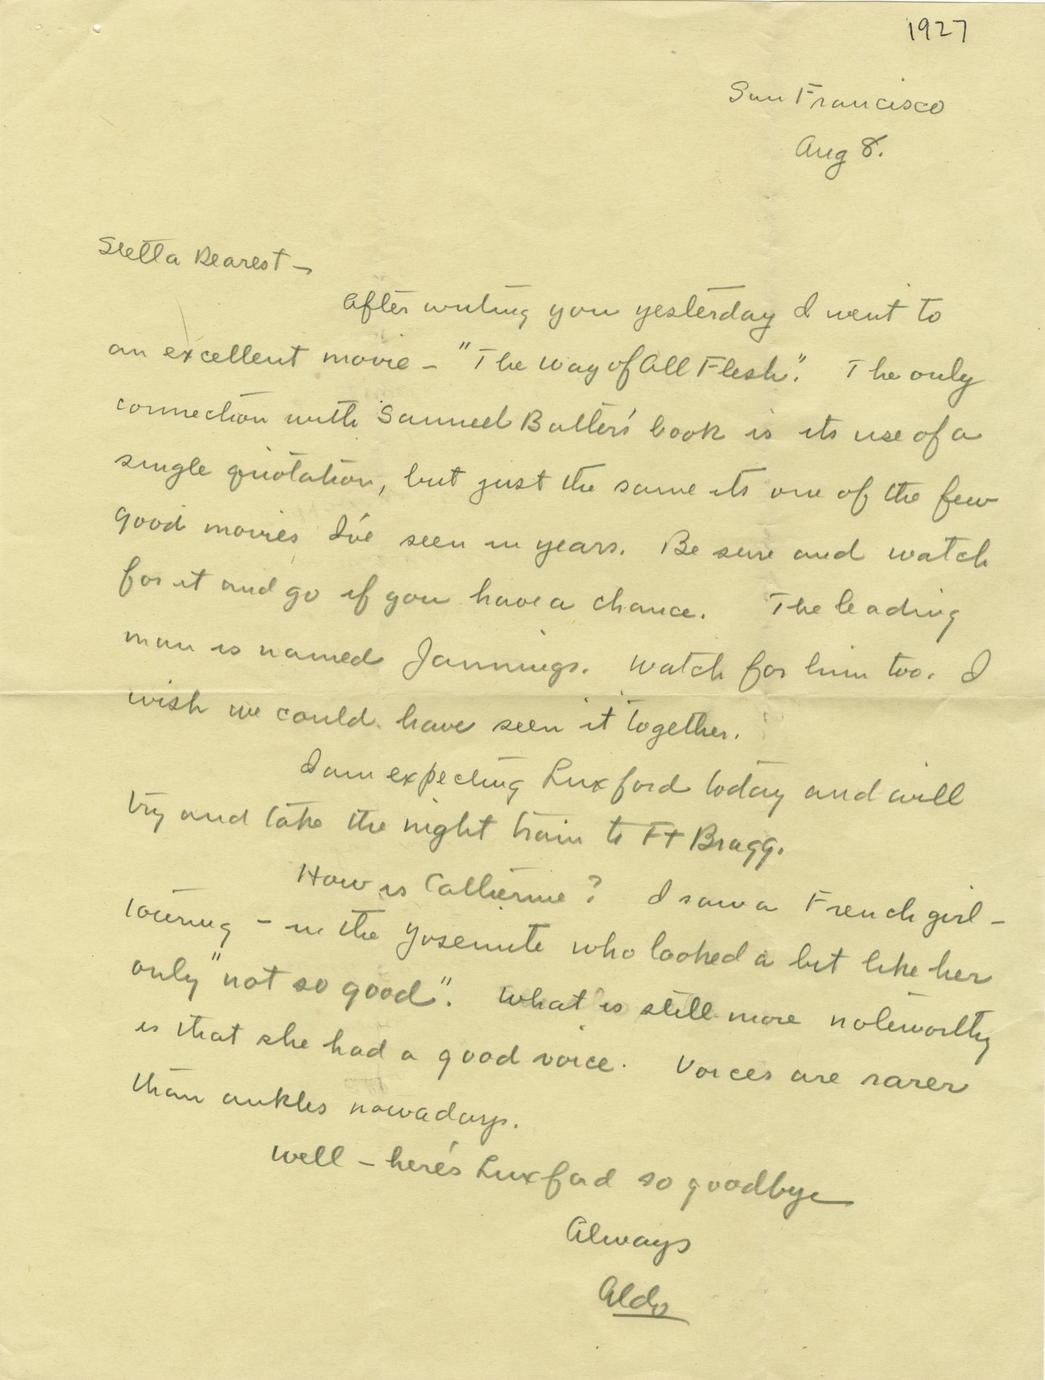 1927
San Francisco
Aug 8.
Stella Dearest –
After writing you yesterday I went to
an excellent movie – "The Way of All Flesh". The only
connection with Samuel Butler's book is its use of a
single quotation, but just the same its one of the few
good movies I've seen in years. Be sure and watch
for it and go if you have a chance. The leading
man is named Jannings. Watch for him too. I
wish we could have seen it together.
I am expecting Luxford today and will
try and take the night train to Ft Bragg.
How is Catherine? I saw a French girl –
touring – in the Yosemite who looked a bit like her
only "not so good". What is still more noteworthy
is that she had a good voice. Voices are rarer
than ankles nowadays.
Well – here's Luxford so goodbye
Always
Aldo